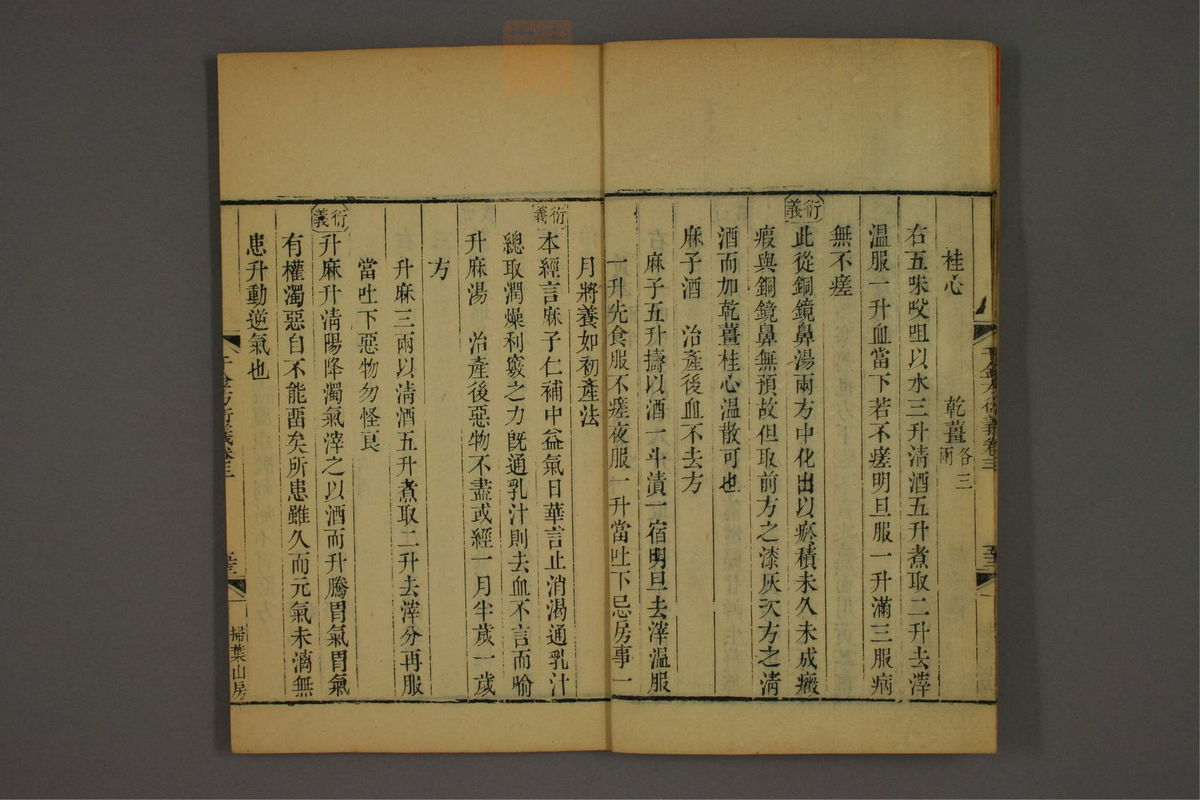 桂心　乾薑各三兩
右五味㕮咀以水三升淸酒五升煮取二升去滓
溫服一升血當下若不瘥明旦服一升滿三服病
無不瘥
衍義
此從銅鏡鼻湯兩方中化出以瘀積未久未成癥
瘕與銅鏡鼻無預故但取前方之漆灰次方之淸
酒而加乾薑桂心溫散可也
麻子酒　治產後血不去方
麻子五升擣以酒一斗漬一宿明旦去滓溫服
一升先食服不瘥夜服一升當吐下忌房事一
月將養如初產法
衍義
本經言麻子仁補中益氣日華言止消渴通乳汁
總取潤燥利竅之力旣通乳汁則去血不言而喻
升麻湯　治產後惡物不盡或經一月半歲一歲
方
升麻三兩以淸酒五升煮取二升去滓分再服
當吐下惡物勿怪良
衍義
升麻升淸陽降濁氣滓之以酒而升騰胃氣胃氣
有權濁惡自不能畱矣所患雖久而元氣未漓無
患升動逆氣也
千金方衍義卷三
掃葉山房